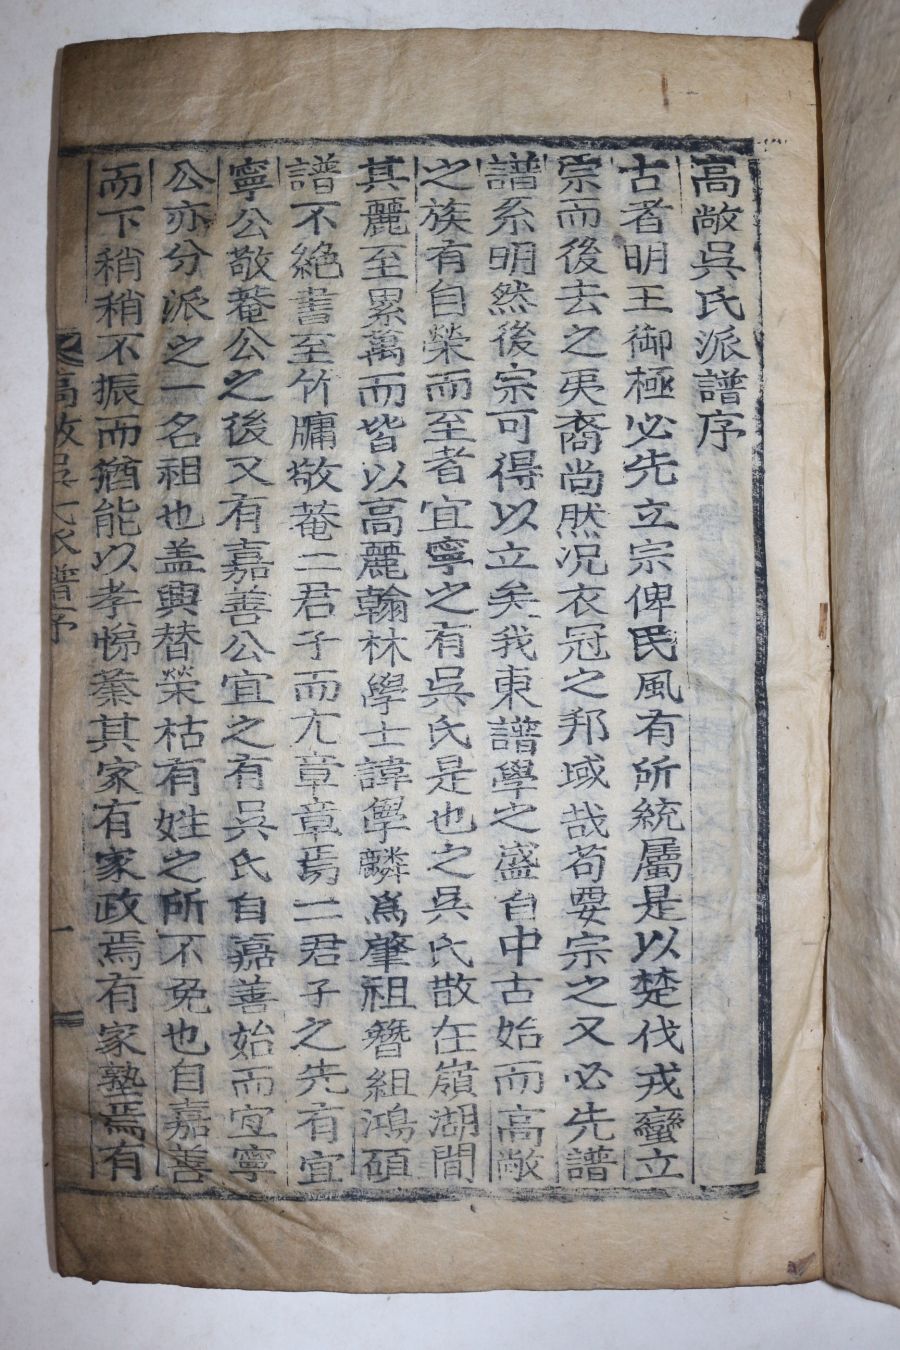 高敞吳氏派譜序
古者明王御極必先立宗俾民風有所統屬是以楚伐戎蠻立
宗而後去之夷裔尚然况衣冠之邦域哉苟要宗之又必先譜
譜系明然後宗可得以立矣我東譜學之盛自中古始而高敞
之族有自榮而至者宜寧之有吳氏是也之吳氏散在嶺湖間
其麗至累萬而皆以高麗翰林學士諱學麟爲肇祖簪組鴻碩
譜不絶書至竹牗敬菴二君子而亢章章焉二君子之先有宜
寧公敬菴公之後又有嘉善公宜之有吳氏自嘉善始而宜寧
公亦分派之一名祖也盖興替榮枯有姓之所不免也自嘉善
而下稍稍不振而猶能以孝悌蓁其家有家政焉有家塾焉有
高敞吳氏派譜序 一